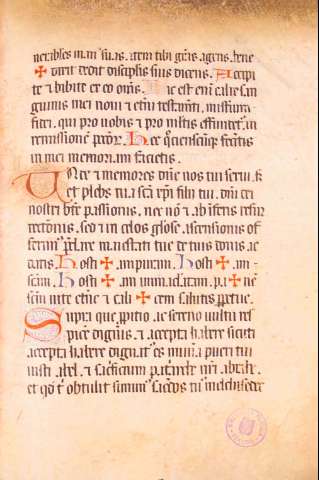 nerabiles man suas. item tibi grãs agens bene
✠ dixit dedit discipłis suis dicens. Accipi
te ⁊ bibite ex eo oms̃. Hic est eni calix san
guinis mei noui ⁊ etni testam̃ti. misteriũ
fidei. qui pro uobis ⁊ pro m̃ltis effundet̃ in
remissionẽ pctõr. Hec q̃cienscũqȝ fec̃itis
in mei memoriam facietis.
Unde ⁊ memores dñe nos tui serui. s
et plebs tua scã xp̃i filii tui. dñi dei
nostri btẽ passionis. nec nõ ⁊ ab inferis resur
rectionis. sed ⁊ in celos gl̃ose. ascensionis of
ferim̃ p̃cl̃re maiestati tue de tuis donis. ac
datis. Hosti ✠ am puram. Hosti ✠ am
scãm. Hosti ✠ am immaculatam. pa ✠ nẽ
scm̃ uite et̃ne ⁊ cali ✠ cem salutis p̃petue.
Supra que p̃pitio ac sereno uultu res
picẽ digneris. ⁊ accepta habere sicuti
accepta habere dignat̃ es mun̾a pueri tui
iusti abel. ⁊ sac̾ficium pat̾arche nr̃i abrahe.
et qđ t̾ obtulit summ̾ sac̾dos tu̾ melchisedec